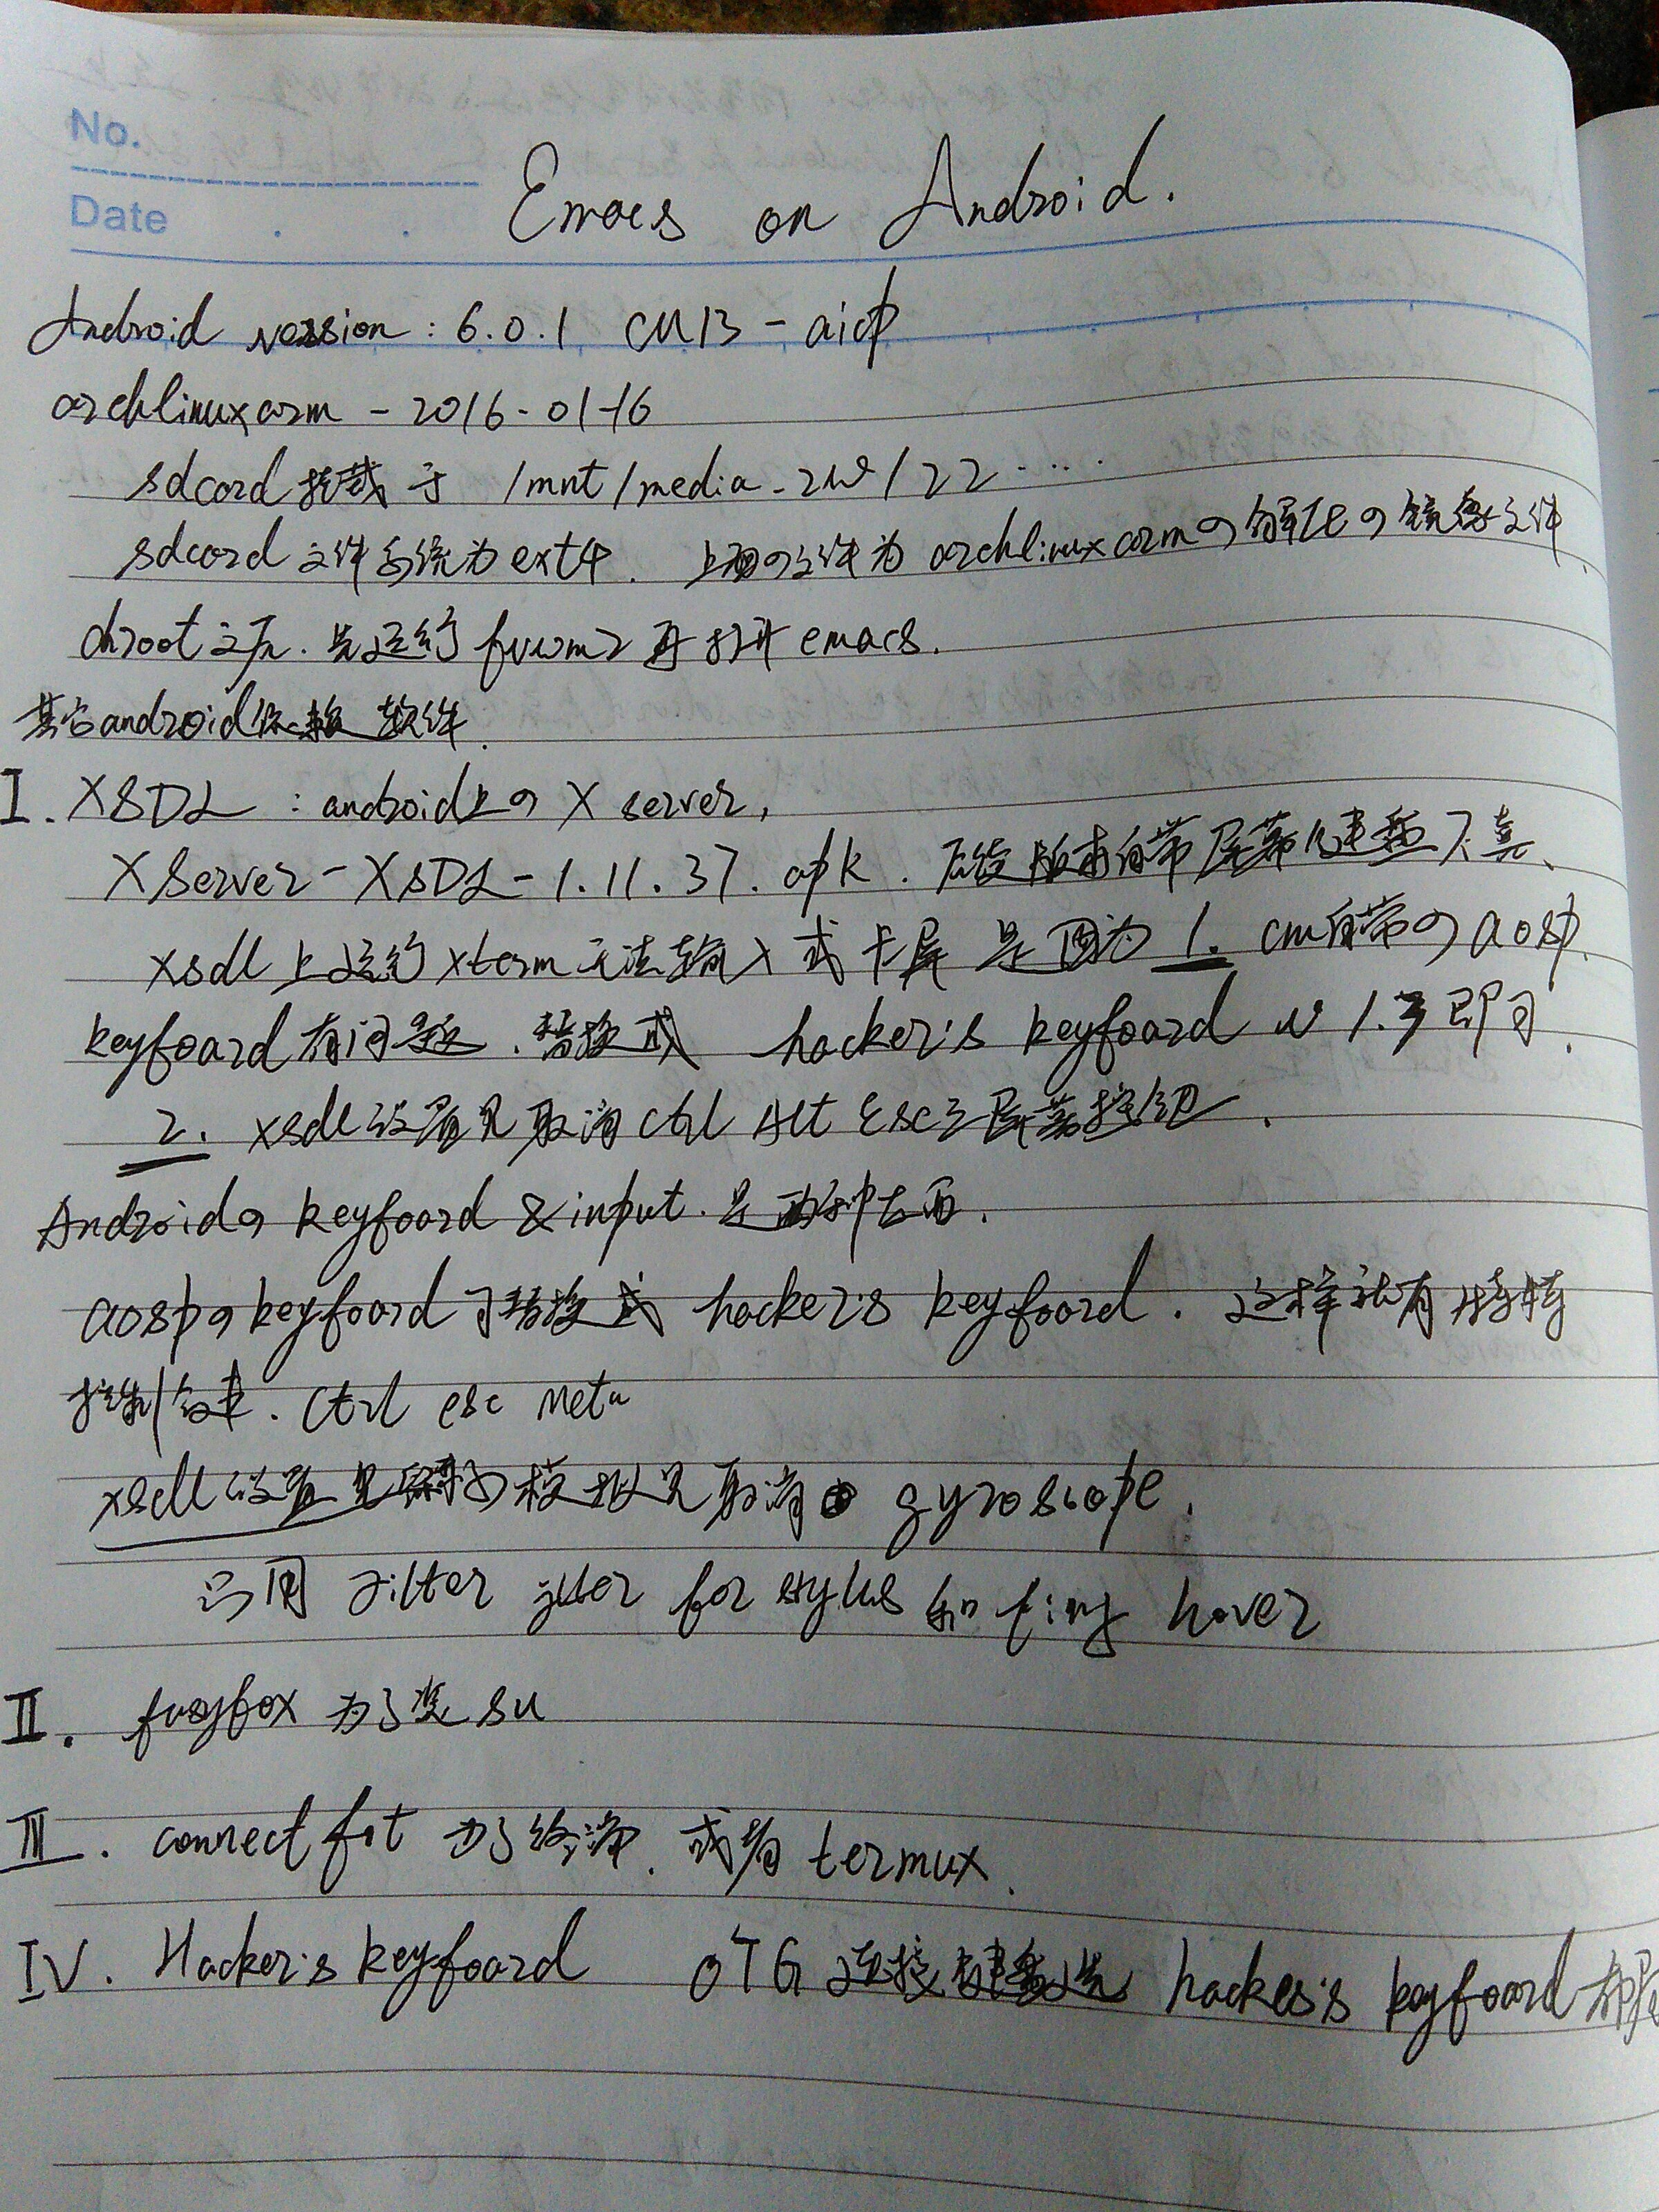 No.
Date
Emacs on Android.
Android version : 6.0.1 CM13 - aicp
archlinuxarm - 2016-01-16
sdcard挂载于 /mnt/media_rw/22.....
sdcard文件系统为ext4. 上面の文件为archlinuxarmの解压の镜像文件.
chroot之后.先运行fvwm2再打开emacs.
其它android依赖软件.
I. XSDL : android上のX server,
Xserver-XSDL-1.11.37.apk. 后续版本自带屏幕键盘不真.
xsdl上运行xterm无法输入或卡屏是因为 1. cm自带のaosp
keyboard有问题.替换成 hacker's keyboard v1.3即可.
2. xsdl设置里取消Ctrl Alt Esc之屏幕按钮.
Androidのkeyboard & input.是两种东西.
aospのkeyboard可替换成 hacker's keyboard. 这样就有
控制键. Ctrl esc meta
xsdl设置里鼠标の模拟里取消 gyroscope.
启用 Filter jitter for stylus 和 fing hover
II. busybox 为了使su
III. connectbot 为了终端. 或者termux.
IV. Hacker's keyboard OTG连接键盘选 hacker's keyboard